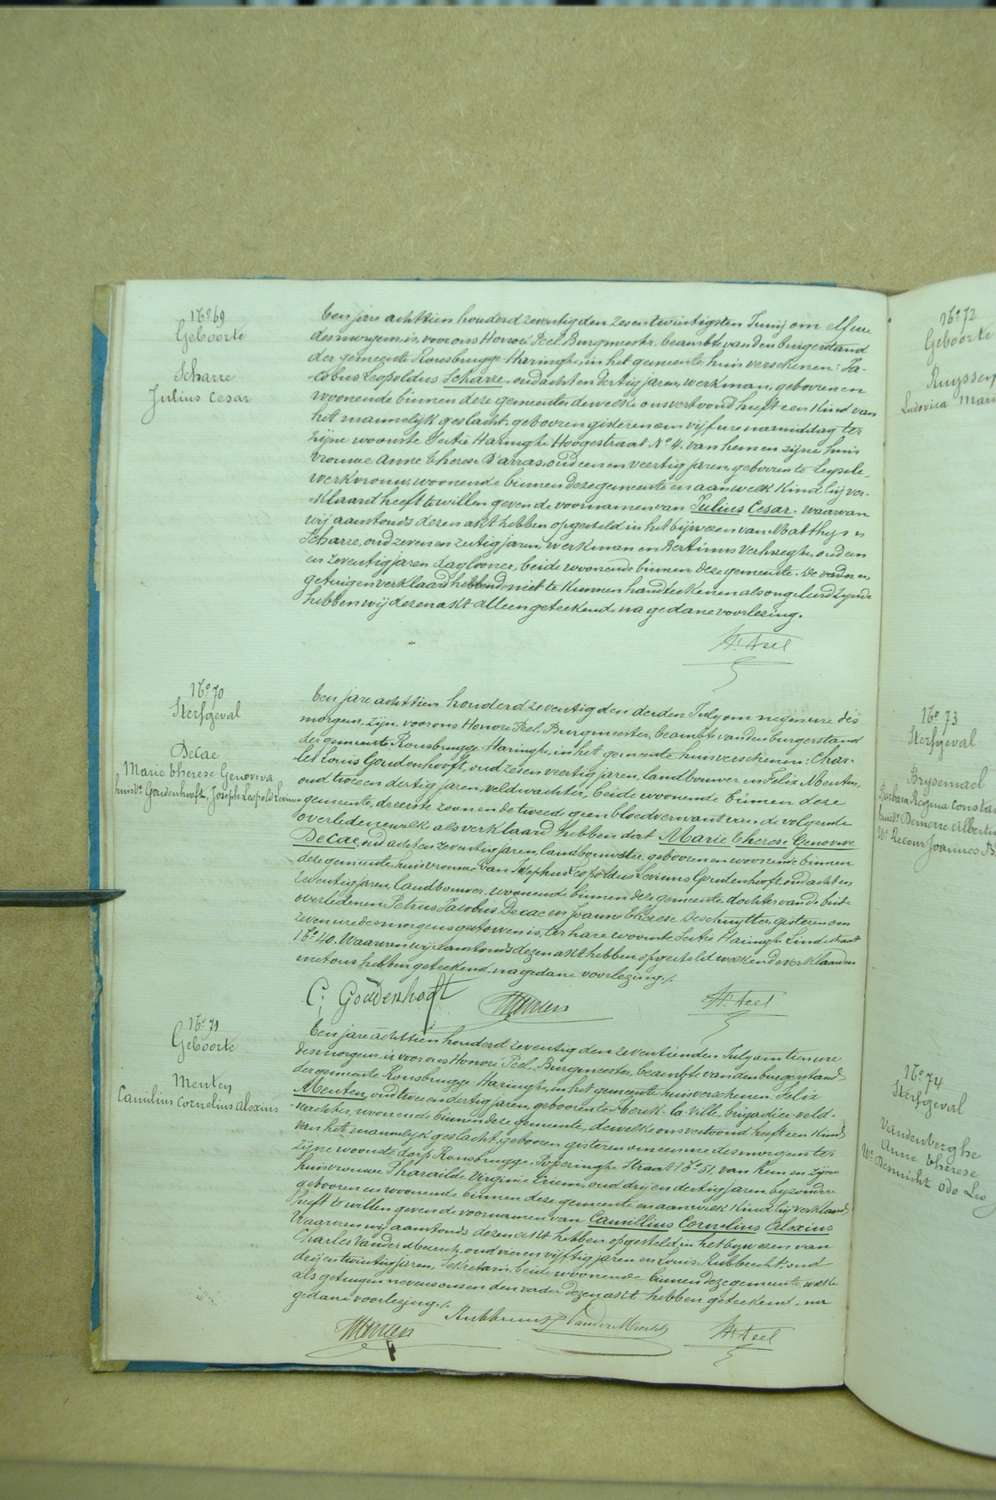 No 69
Geboorte
Scharre
Julius Cesar
Een jare achttien honderd zeventig den zes en twintigsten Junij om elf ure
des morgens, is voor ons Honoré Peel Burgmeester, beambte van den burgerstand
der gemeente Rousbrugge-Haringhe, in het gemeente huis verschenen: Ja-
-cobus Leopoldus Scharre, oud acht en dertig jaren, werkman, geboren en
woonende binnen deze gemeente, dewelke ons vertoond heeft een Kind van
het mannelijk geslacht, geboren gisteren om vijf ure namiddag ter
zijne woonste Sectie Haringhe Hoogestraat No 4. van hem en zijne huis
vrouwe Anne Therese Darras, oud een en veertig jaren, geboren te Leysele,
werkvrouw, woonende binnen deze gemeente en aan welk Kind hij ver-
-klaard heeft te willen geven de voornamen van Julius Cesar. waarvan
wij aanstonds dezen akt hebben opgesteld in het bijwezen van Matthys
Scharre, oud zeven en zestig jaren, werkman en Bertinus Verhaeghe, oud een
en zeventig jaren dagloonre, beide woonende binnen deze gemeente. De vader en
getuigen verklaard hebbende niet te kunnen handteekenen als ongeleerd zijnde
hebben wij dezen akt alleen geteekend na gedane voorlezing.
H. Peel
No 70
Sterfgeval
Decae
Marie Therese Genoviva
huisve Goudenhooft, Joseph Leopold Levinus
Een jare achttien honderd zeventig den derden July om negen ure des
morgens, zijn voor ons Honoré Peel, Burgmeester, beambte van den burgerstand
der gemeente Rousbrugge-Haringhe, in het gemeente huis verschenen: Char-
les Louis Goudenhooft, oud zes en veertig jaren, landbouwer en Felix Menten,
oud twee en dertig jaren, veldwachter, beide woonende binnen deze
gemeente, de eerste zoon en de tweede geen bloedverwant van de volgende
overledene welke als verklaard hebben dat Marie Therese Genoviva
Decae, oud acht en zeventig jaren, landbouwster, geboren en woonende binnen
deze gemeente huisvrouwe van Josephus Leopoldus Levinus Goudenhooft, oud acht en
zeventig jaren, landbouwer, woonende binnen deze gemeente dochter van de beide
overledenen Petrus Jacobus Decae en Joanne Therese Deschuytter, gisteren om
zeven ure des morgens gestorven is, ter hare woonste Sectie Haringhe Lindestraat
No 40. Waarvan wij aanstonds dezen akt hebben opgesteld welken de verklaarders
met ons hebben geteekend na gedane voorlezing./.
C. Goudenhooft
Menten
H. Peel
No 71
Geboorte
Menten
Camilius Cornelius Aloxius
Een jare achttien honderd zeventig den zeventienden July om tien ure
des morgens, is voor ons Honoré Peel, Burgmeester, beambte van den burgerstand
der gemeente Rousbrugge-Haringhe, in het gemeente huis verschenen: Felix
Menten, oud twee en dertig jaren, geboren te Sterck-la-Ville, brigadier veld-
-wachter, woonende binnen deze gemeente, dewelke ons vertoond heeft een Kind
van het mannelijk geslacht, geboren gisteren om een ure des morgens ter
zijne woonste dorp Rousbrugge, Poperinghe Straat No 51. van hem en zijne
huisvrouwe Pharailde Virginie oud drij en dertig jaren, bijzondre
geboren en woonende binnen deze gemeente en aan welk Kind hij verklaard
heeft te willen geven de voornamen van Camillius Cornelius Aloxius
Waarvan wij aanstonds dezen akt hebben opgesteld in het bijwezen van
Charles Vandermeersch, oud vier en vijftig jaren en Louis Rubbrecht, oud
drij en twintig jaren, Sekretaris, beide woonende binnen deze gemeente, welke
als getuigen nevens ons en den vader dezen akt hebben geteekend, na
gedane voorlezing./.
Menten
Rubbrecht
H. Peel
No 72
Geboorte
Ludovica
No 73
Sterfgeval
Brysemael
Barbara Regina
No 74
Sterfgeval
Vandenberghe
Anne Therese